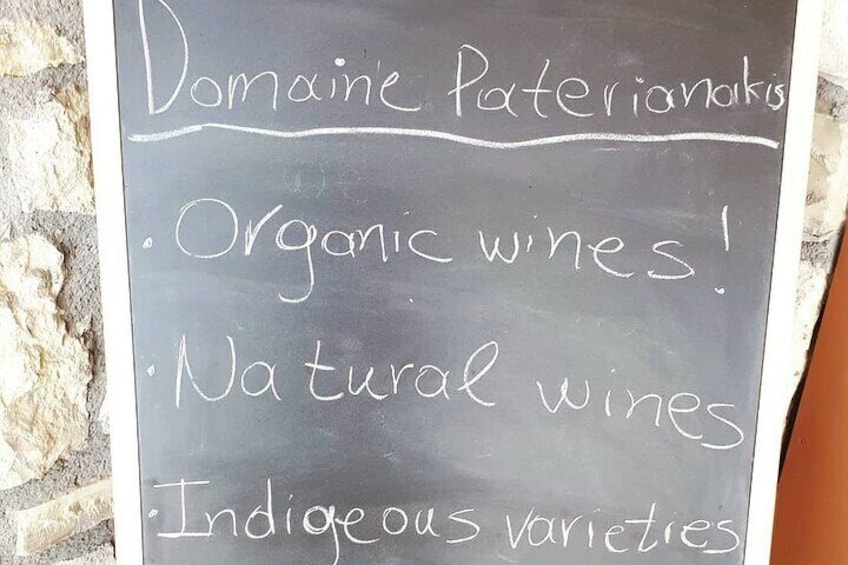 Domaine Paterianakis
· Organic wines!
· Natural wines
· Indigeous varieties